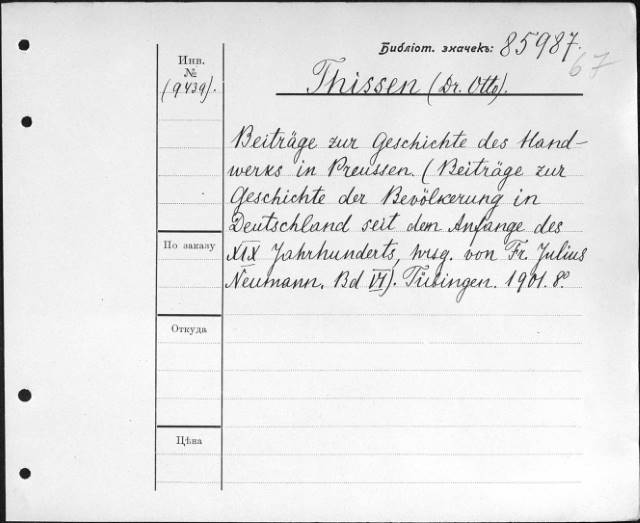 Библіот. значекъ: 85987.
67
Инв.
№
(9439).
Thissen (Dr. Otto).
Beiträge zur Geschichte des Hand-
werks in Preussen. (Beiträge zur
Geschichte der Bevölkerung in
Deutschland seit dem Anfange des
XIX Jahrhunderts, hrsg. von Fr. Julius
Neumann. Bd VI). Tübingen. 1901. 8º
По заказу
Откуда
Цѣна